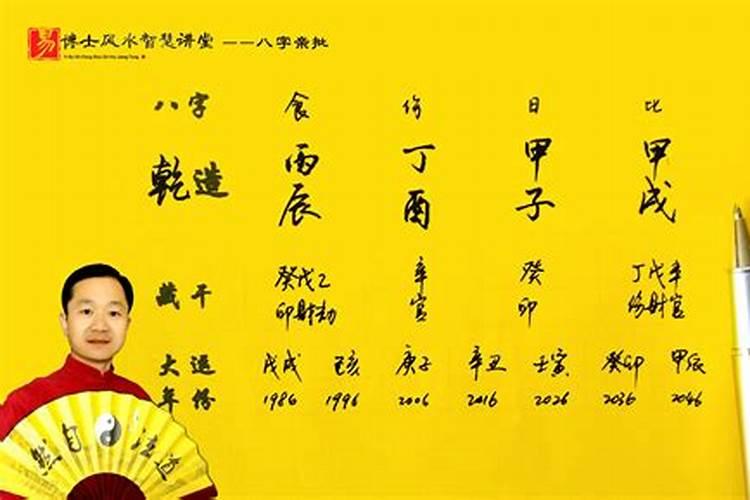 易 博士风水智慧讲堂 ——八字亲批
八字 食 伤 日 比
乾造 丙辰 丁酉 甲子 甲戌
藏干 癸戊乙 辛 癸 丁戊辛
印财劫 官 印 伤财官
大运 戊戌 己亥 庚子 辛丑 壬寅 癸卯 甲辰
年份 1986 1996 2006 2016 2026 2036 2046
然自法道